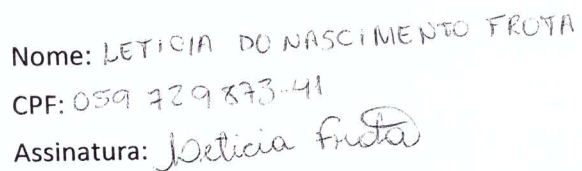 Nome: LETICIA DO NASCIMENTO FROTA
CPF: 059 729 873-41
Assinatura: Leticia Frota